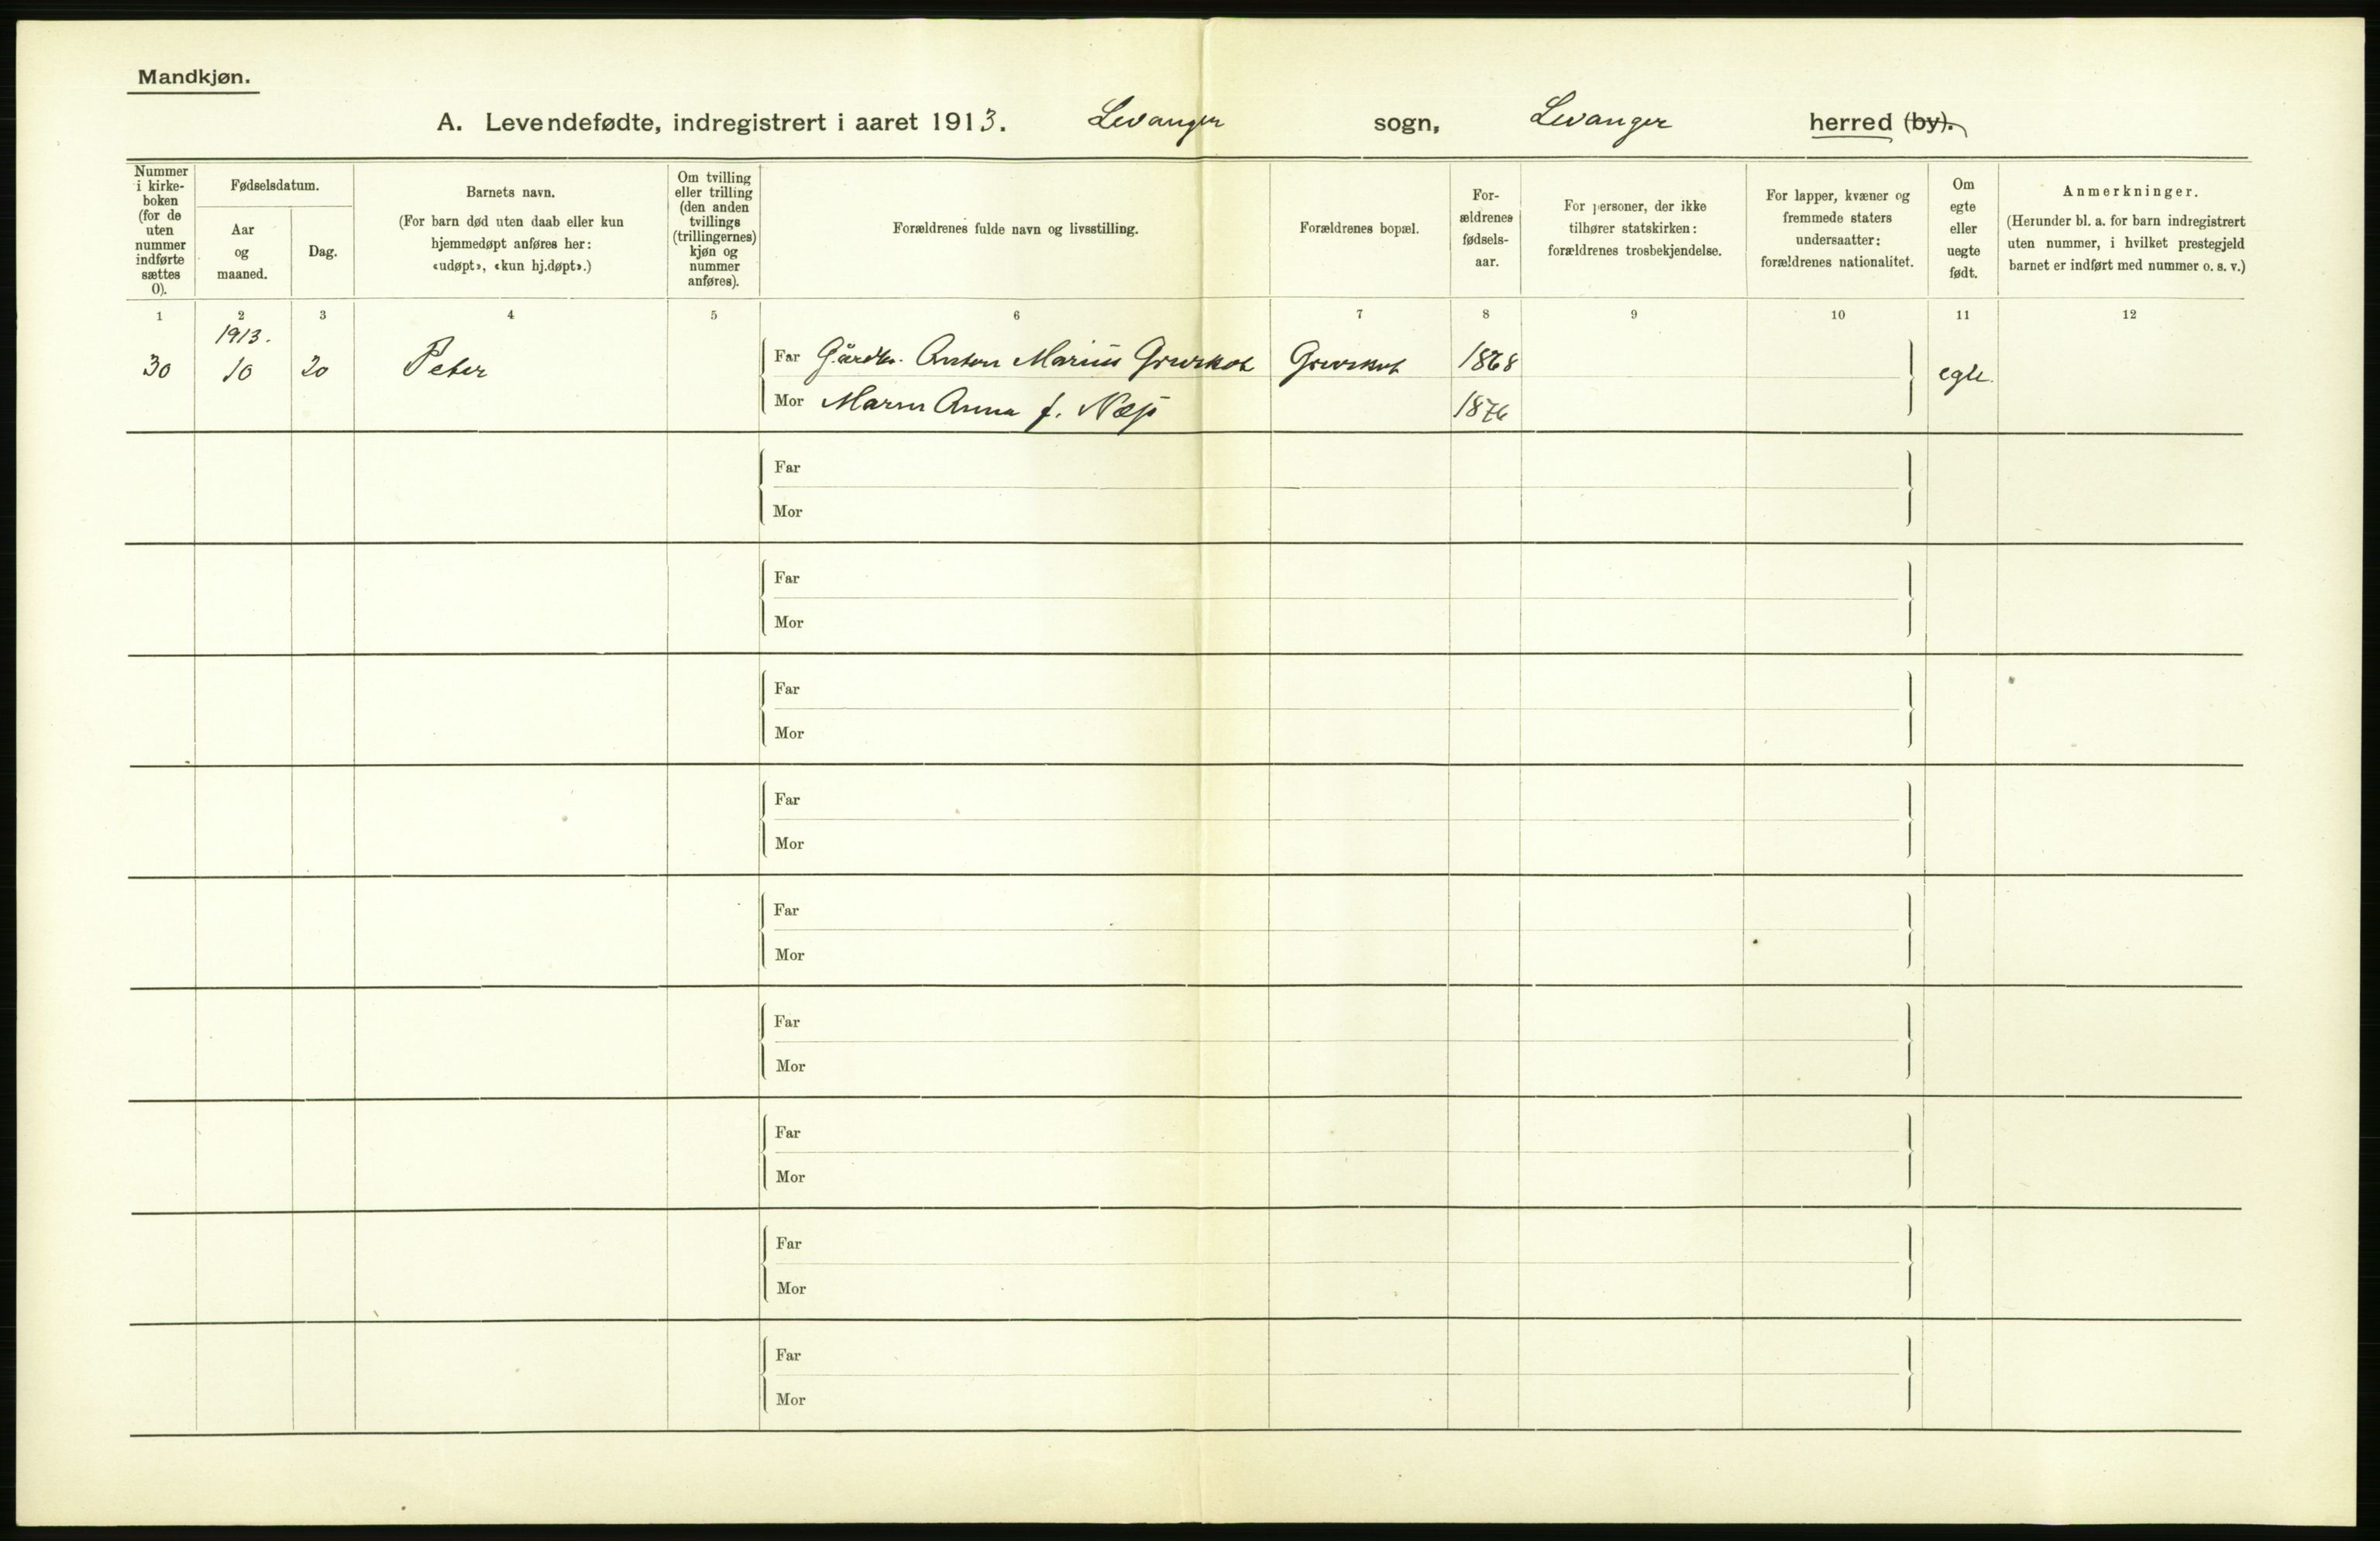 Mandkjøn.
A. Levendefødte, indregistrert i aaret 1913. Levanger sogn, Levanger herred (by).
Nummer i kirke-boken (for de uten nummer indførte sættes 0).
Fødselsdatum.
Aar og maaned.
Dag.
Barnets navn.
(For barn død uten daab eller kun
hjemmedøpt anføres her:
«udøpt», «kun hj.døpt».)
Om tvilling
eller trilling
(den anden
tvillings
(trillingernes)
kjøn og
nummer
anføres).
Forældrenes fulde navn og livsstilling.
Forældrenes bopæl.
For-
ældrenes
fødsels-
aar.
For personer, der ikke
tilhører statskirken:
forældrenes trosbekjendelse.
For lapper, kvæner og
fremmede staters
undersaatter:
forældrenes nationalitet.
Om
egte
eller
uegte
født.
Anmerkninger.
(Herunder bl. a. for barn indregistrert
uten nummer, i hvilket prestegjeld
barnet er indført med nummer o. s. v.)
1 2 3 4 5 6 7 8 9 10 11 12
1913.
30 10 20 Peter Far Gårdbr. Anton Marius 1868 egte.
Mor Anna f. 1876
Far
Mor
Far
Mor
Far
Mor
Far
Mor
Far
Mor
Far
Mor
Far
Mor
Far
Mor
Far
Mor